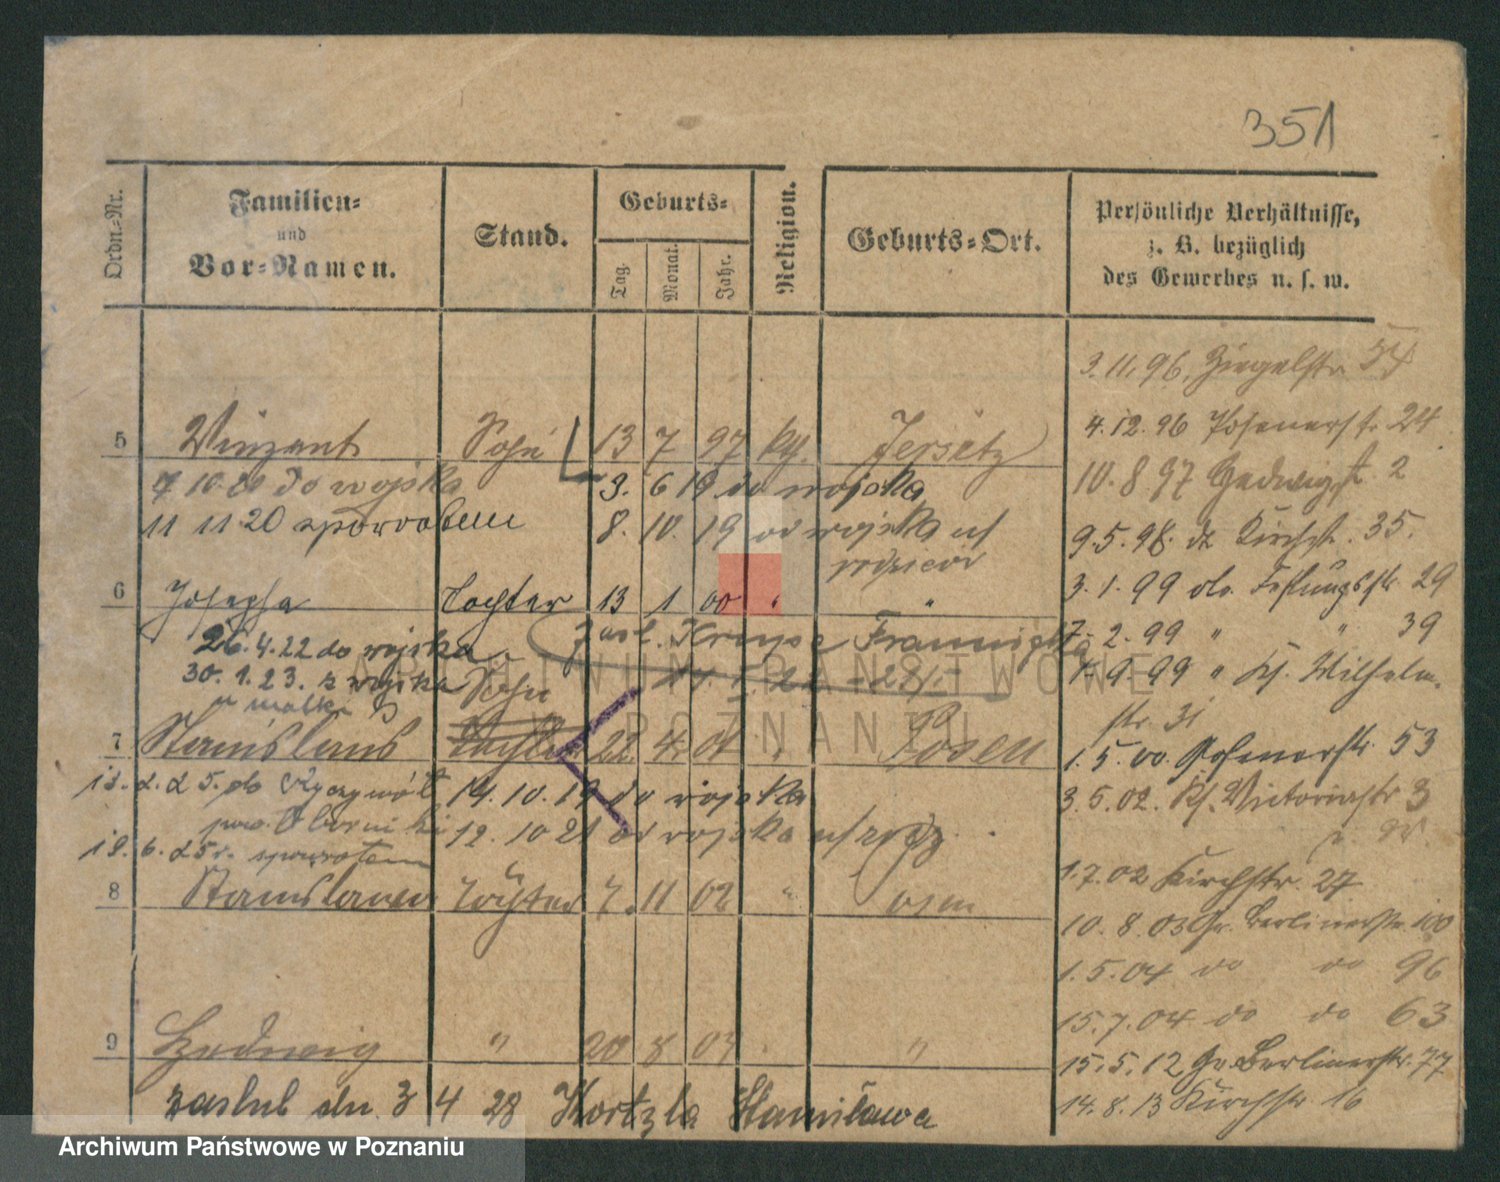 351
Ordn.-Nr.
Familien-
und
Vor-Namen.
Stand.
Geburts-
Tag.
Monat.
Jahr.
Religion.
Geburts-Ort.
Persönliche Verhältnisse,
z. B. bezüglich
des Gewerbes u. s. w.
3.11.96. Ziegelstr.
4.12.96 Posenerstr. 24
5 Vinzent Sohn 13 7 97 kth. Jersitz
10.8.97 Hedwigstr. 2
7 10 do wojska
3. 6 19 do wojska
11 11 20 spowrotem
8. 10. 19 od wojska
rodziców
9.5.98. Kirchstr. 35.
6 Josepha Tochter 13 1 00 " "
3.1.99 Festungsstr 29
26.4.22 do wojska
zasl. Franciszka
2.99 " " 39
30.1.23. z wojska
Sohn
9.99 " Kf. Wilhelm-
str. 31
7 Stanislaus 22 4 01 " Posen
1.5.00. Posenerstr. 53
5. do Ryczywół
14.10.19 do wojska
3.5.02. Kf. Victoriastr 3
pow. Oborniki
12.10 21 od wojska
6.25 r. spowrotem
1.7.02 Kirchstr. 27
8 Stanislawa Tochter 7. 11 02 " Posen
10.8.03 Gr. Berlinerstr. 100
1.5.04 do do 96
15.7.04 do do 63
9 Hedwig " 20 8 07 "
15.5.12 Gr. Berlinerstr. 77
zaślub dn. 3 4 28 Stanisława
14.8.13 Kirchstr 16
ARCHIWUM PAŃSTWOWE
W POZNANIU
Archiwum Państwowe w Poznaniu